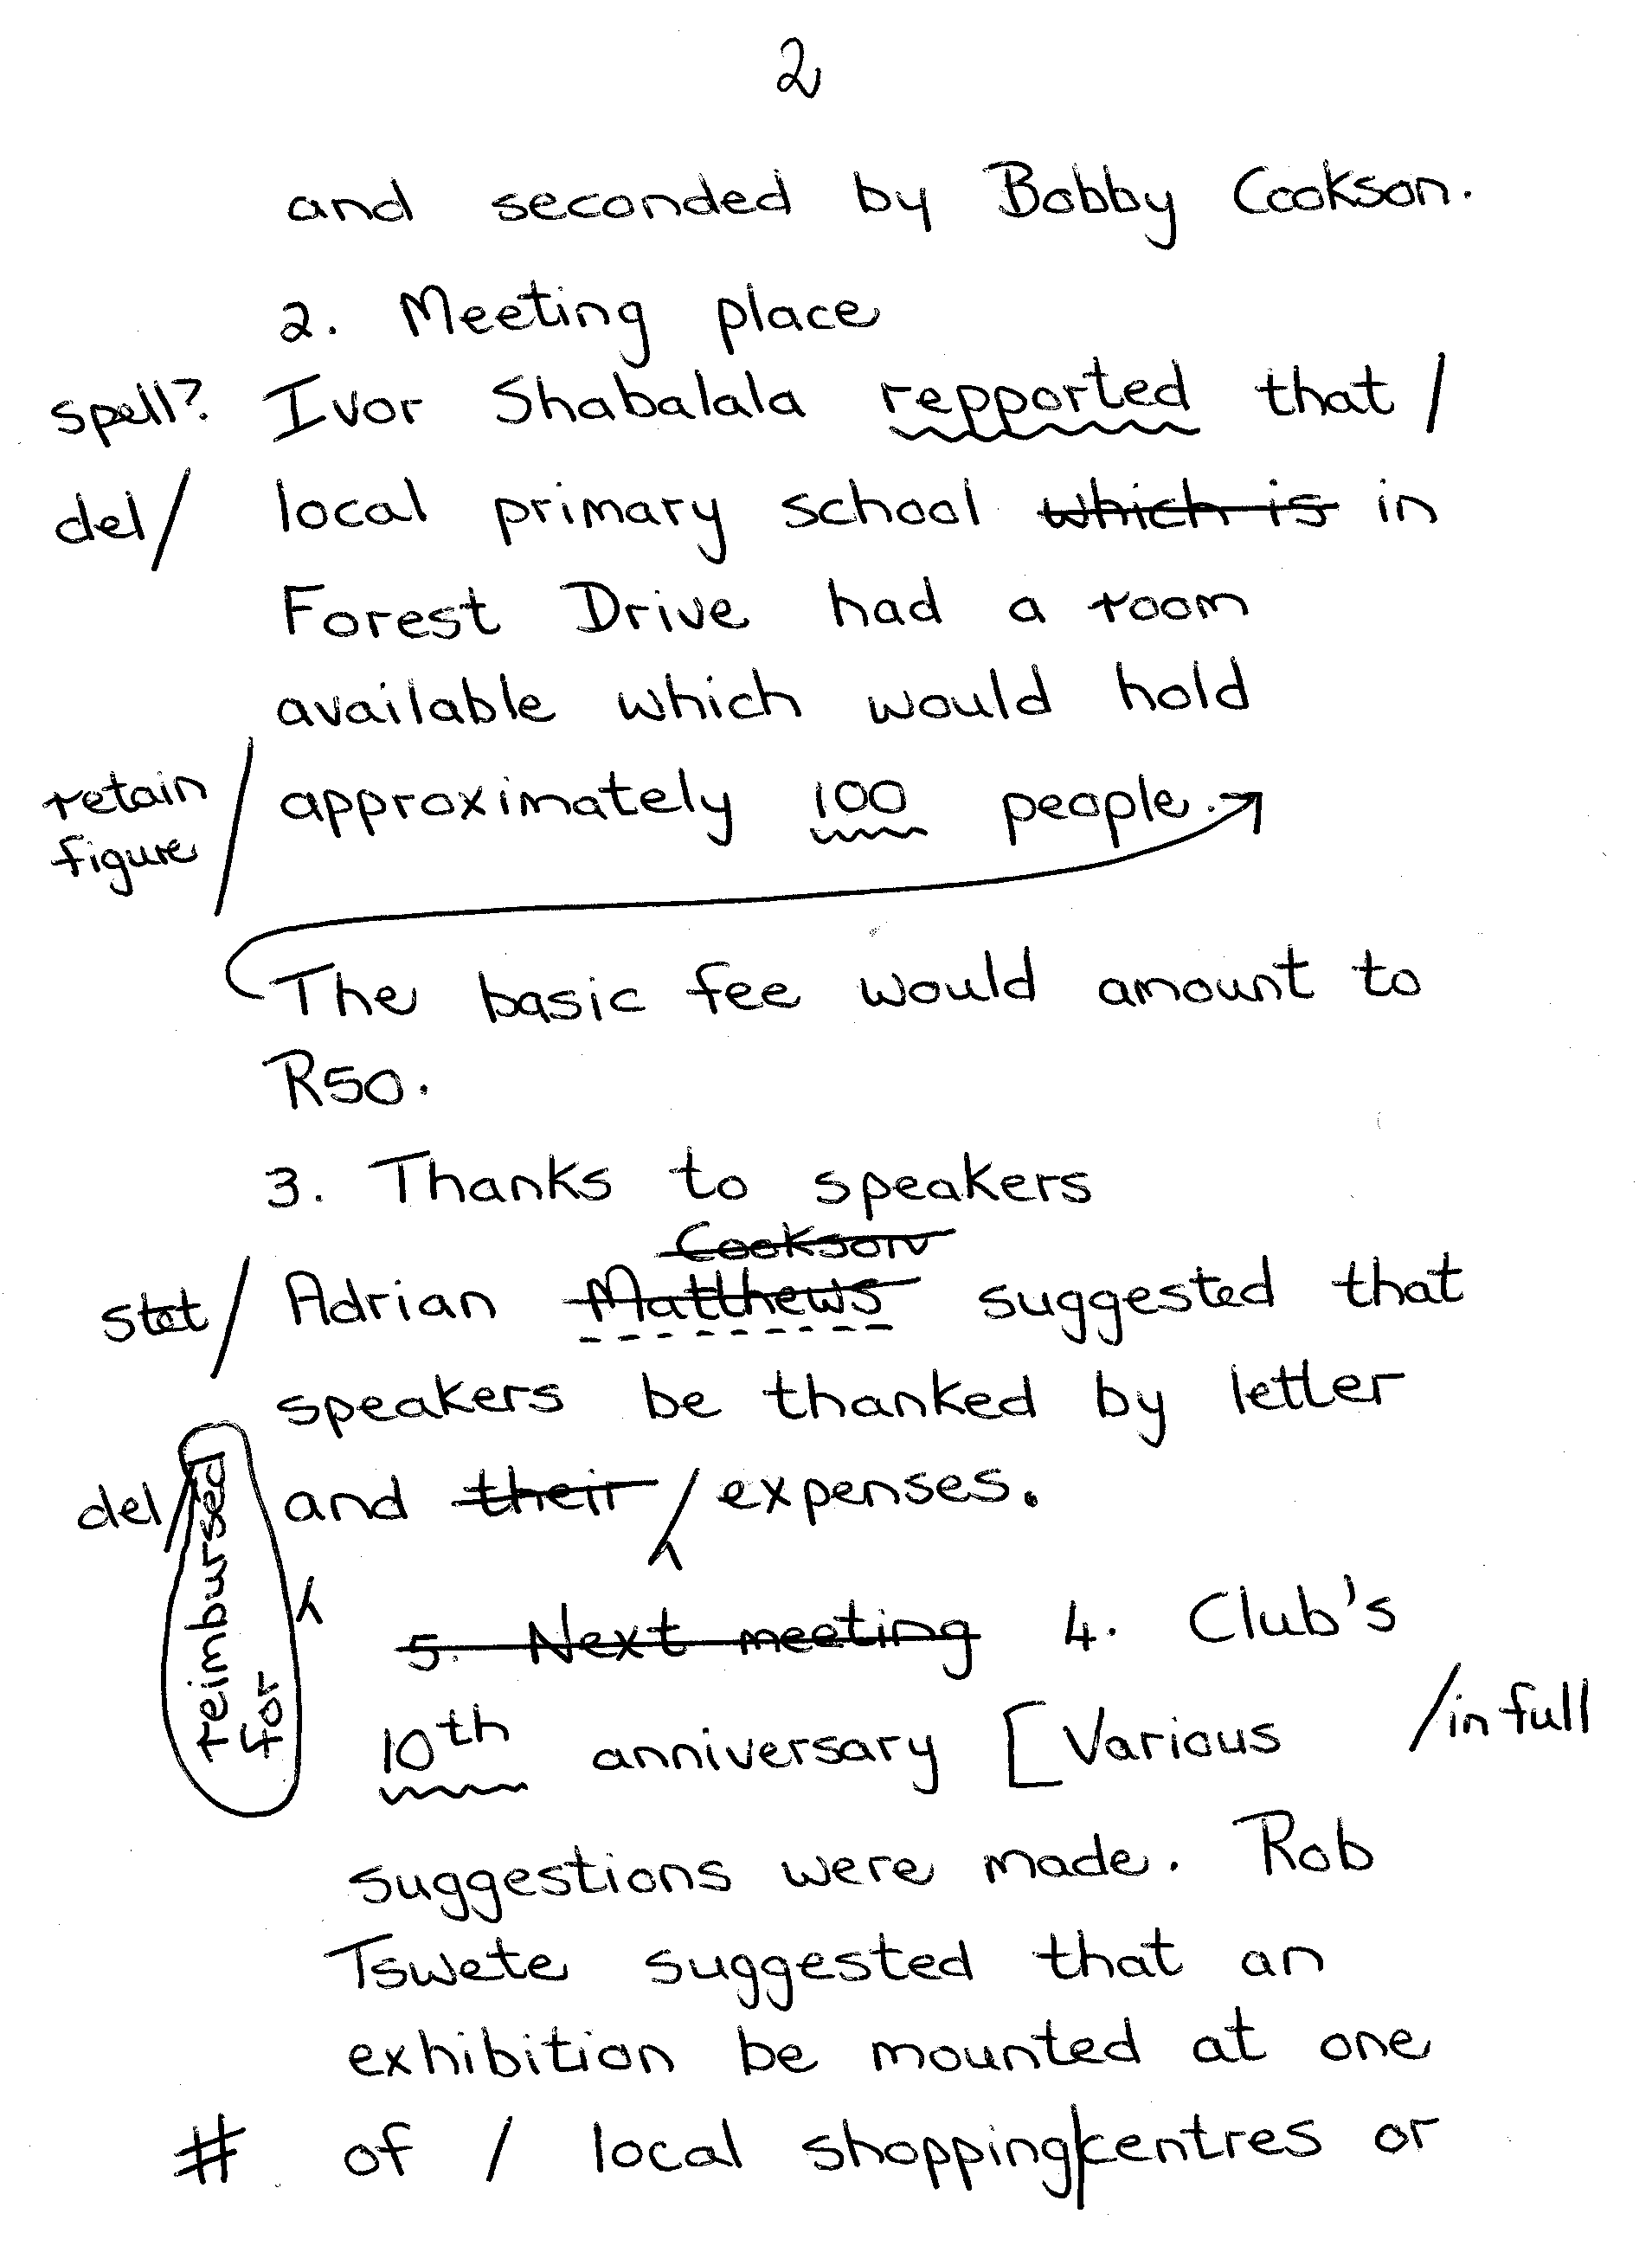 2
and seconded by Bobby Cookson.
2. Meeting place
spell? Ivor Shabalala repported that /
del/ local primary school which is in
Forest Drive had a room
available which would hold
retain figure / approximately 100 people.
The basic fee would amount to
R50.
3. Thanks to speakers
Cookson
stet/ Adrian Matthews suggested that
speakers be thanked by letter
del/ and their / expenses.
reimbursed
for
5. Next meeting 4. Club's
10th anniversary [Various /in full
suggestions were made. Rob
Tswete suggested that an
exhibition be mounted at one
# of / local shopping|centres or